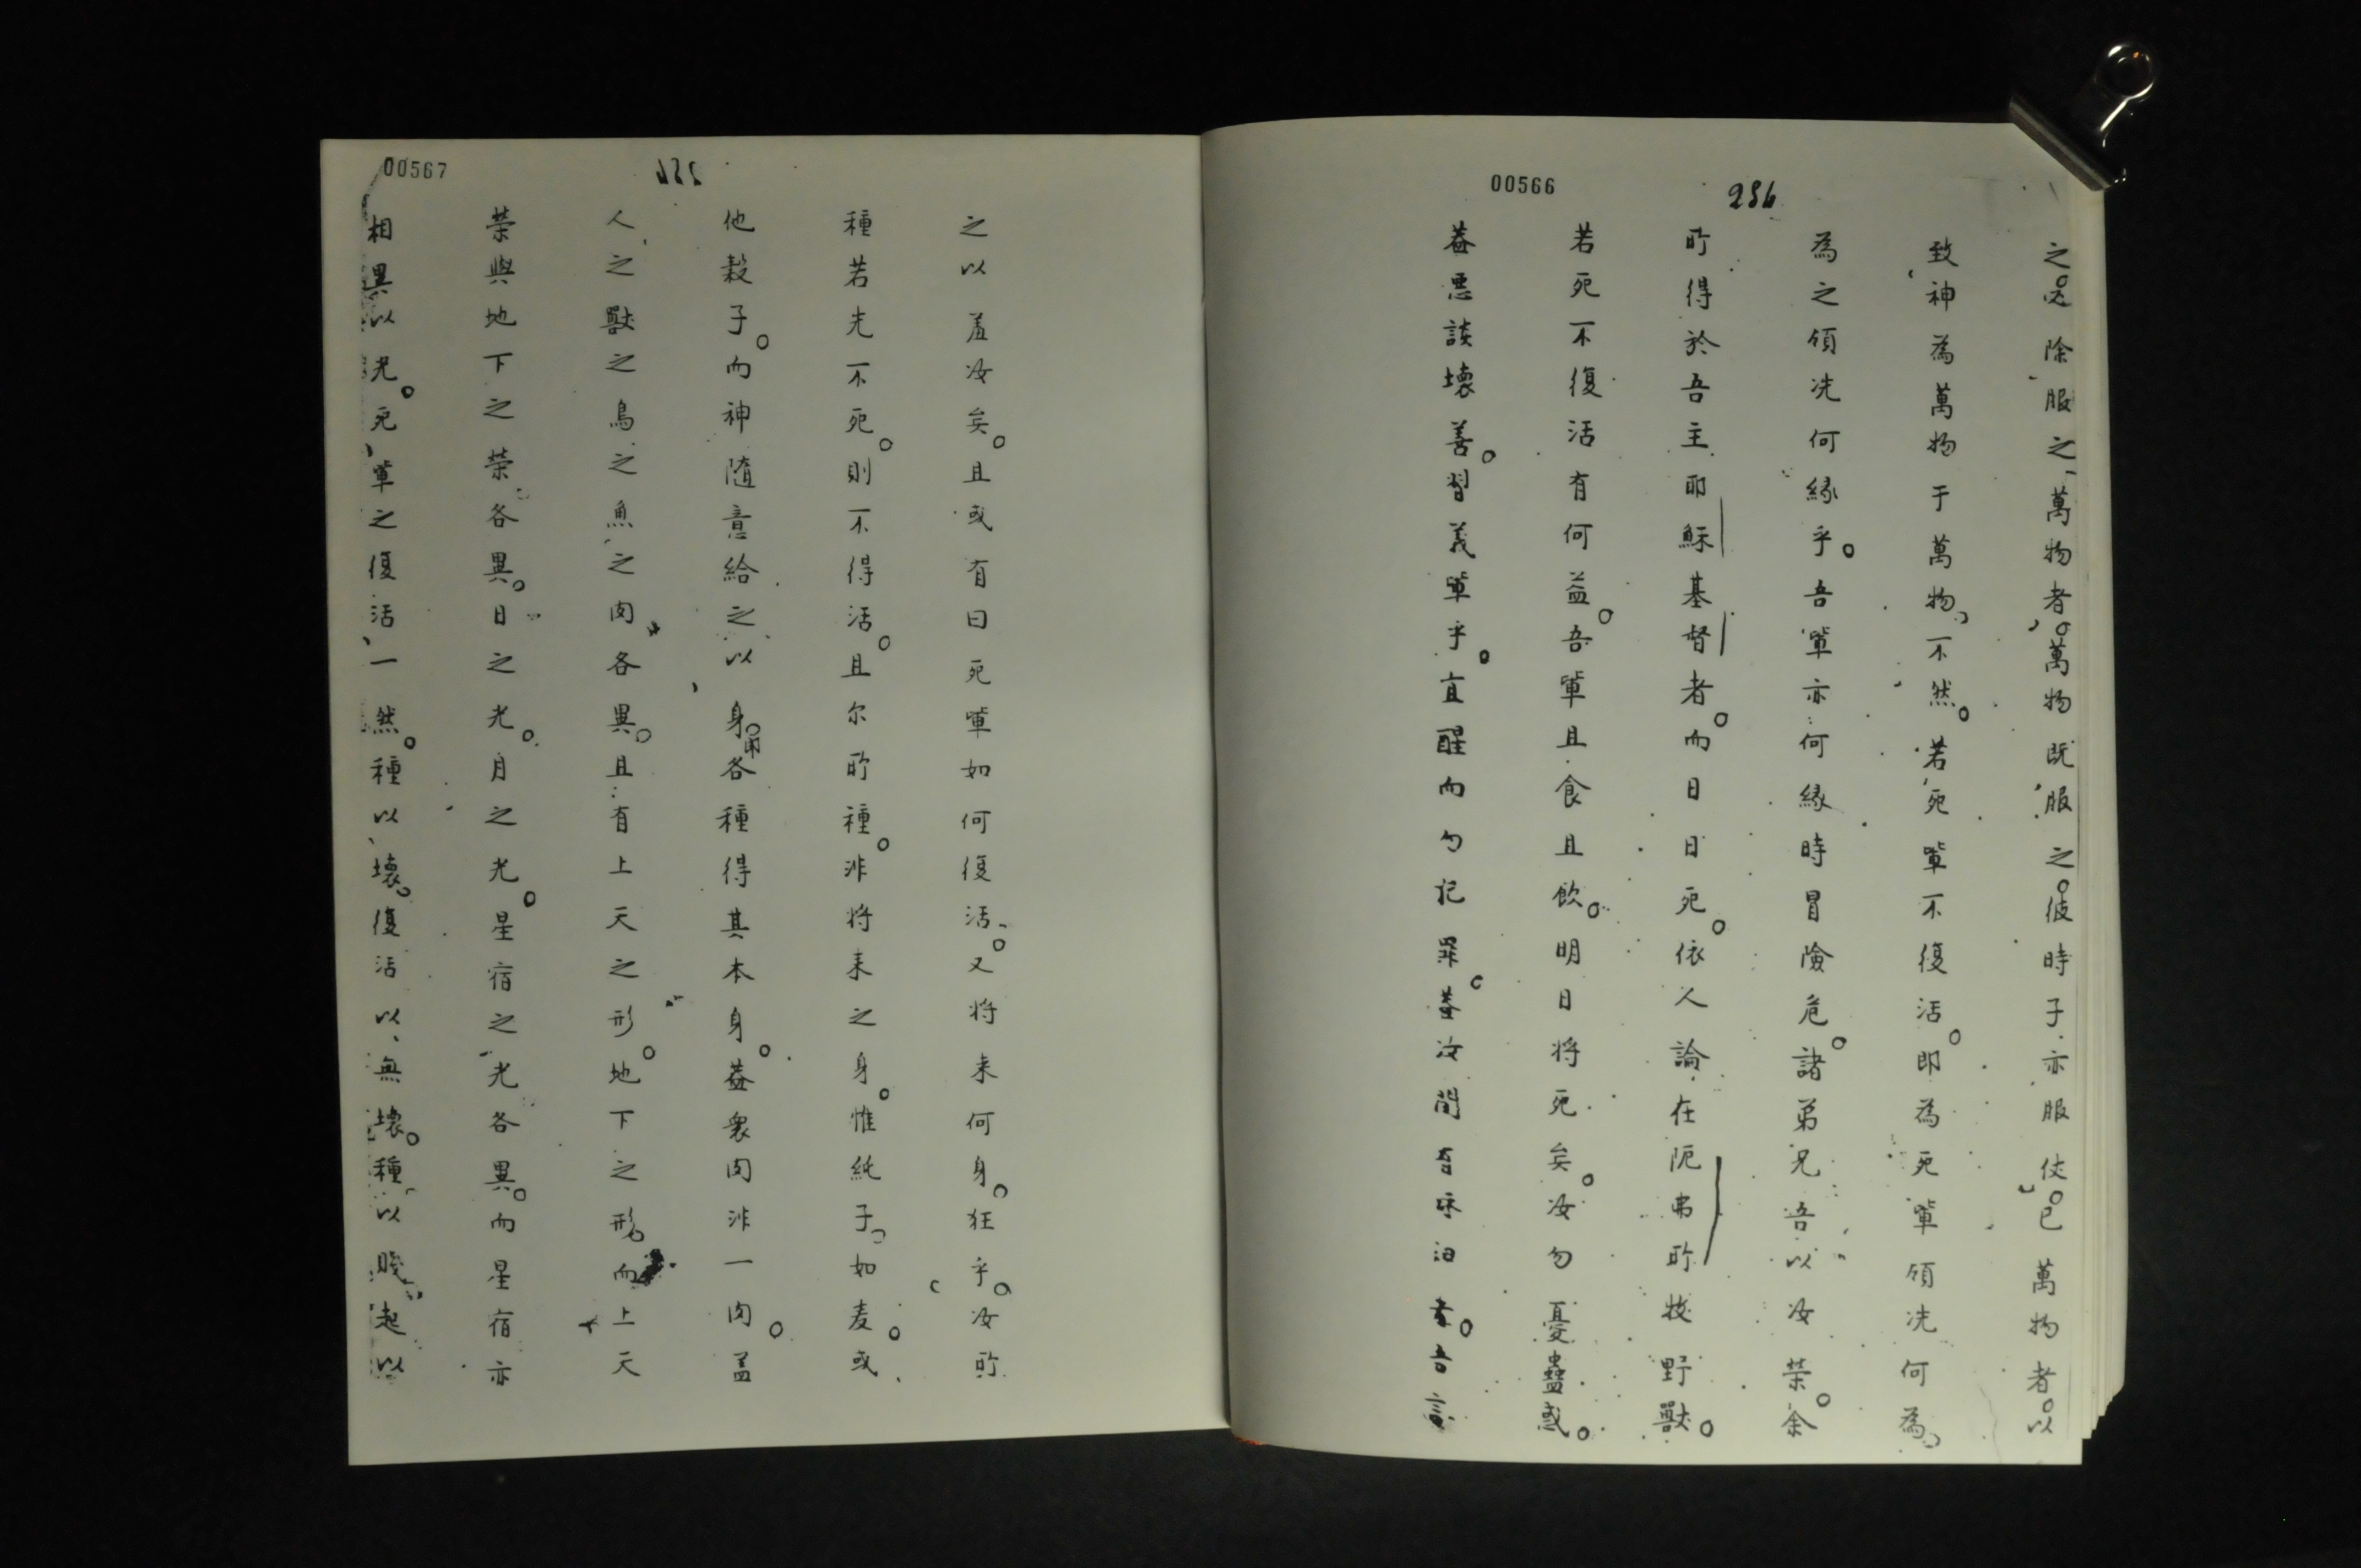 00566
286
之。必除服之萬物者。萬物既服之。彼時子亦服使。已萬物者。以
致神為萬物于萬物、不然。若死軰不復活。即為死軰領洗何為、
為之領洗何緣乎。吾軰亦何緣時冒險危。諸弟兄吾以汝荣。余
所得於吾主耶穌基督者。而日日死。依人論在阨弗所㧣野獸。
若死不復活有何益。吾軰且食且飲。明日將死矣。汝勿憂蠱惑。
葢悪談壊善。習義軰乎。宜醒而勿記罪。葢汝間有 者。吾言
00567
之以羞汝矣。且或有曰死軰如何復活。又将来何身。狂乎。汝所
種若先不死。則不得活。且尔所種。非将来之身。惟純子。如麦。或
他穀子。而神隨意給之以身。用各種得其本身。葢衆肉非一肉。盖
人之獸之鳥之魚之肉各異。且有上天之形。地下之形。而上天
荣與地下之荣各異。日之光。月之光。星宿之光各異。而星宿亦
相異以光。死軰之復活一然。種以壊。復活以無壊。種以賤、起以